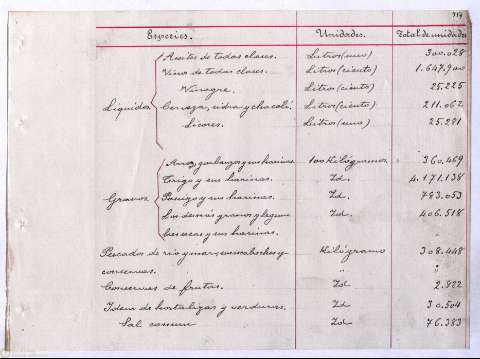 Especies. Unidades. Total de unidades
Aceites de todas clases. Litros (uno) 300.028
Vino de todas clases. Litros (ciento) 1.647.900
Vinagre. Litro (ciento) 25.225
Líquidos Cerveza, sidra y chacolí. Litros (ciento) 211.062
Licores. Litros (uno) 25.291
Arroz, garbanzos y sus harinas 100 Kilógramos 360.469
Trigo y sus harinas. Id. 4.171.138
Granos Panizo y sus harinas. Id. 783.053
Los demás granos y legum Id. 406.518
bres secas y sus harinas.
Pescados de río y mar, escabeches y Kilógramo 308.448
conservas. "
Conservas de frutas. Id 2.822
Idem de hortalizas y verduras. Id 30.504
Sal común Id 76.383